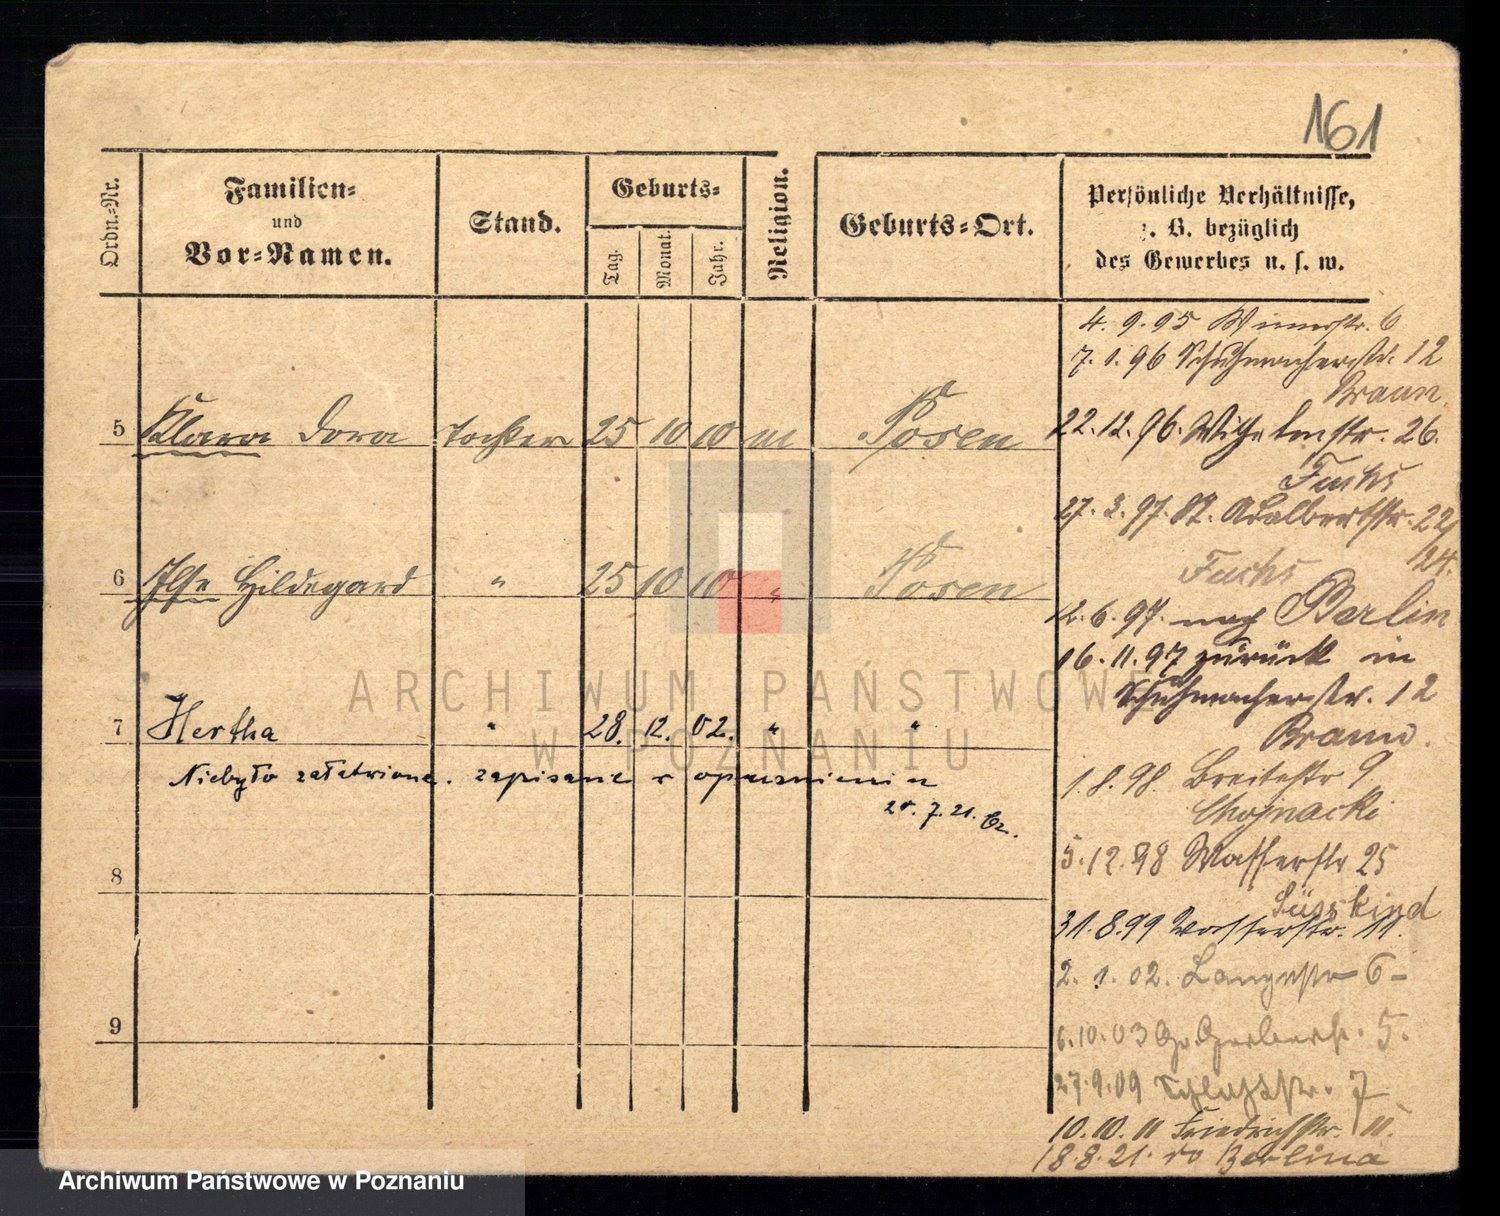 161
Ordn.-Nr.
Familien-
und
Vor-Namen.
Stand.
Geburts-
Tag.
Monat.
Jahr.
Religion.
Geburts-Ort.
Persönliche Verhältnisse,
z. B. bezüglich
des Gewerbes u. s. w.
4. 9. 95 Wienerstr. 6
7. 1. 96 Schuhmacherstr. 12
Braun.
5 Klara Dora Tochter 25 10 10 m Posen
22. 12. 96. Wilhelmstr. 26.
Fuchs
27. 3. 97. St. Adalbertstr. 22/
24.
Fuchs
6 Ilse Hildegard " 25 10 10 " Posen
12. 6. 97. nach Berlin
16. 11. 97 zurück in
Schuhmacherstr. 12
Braun.
7 Hertha " 28. 12. 02. " "
Niebyło załatwione. zapisane
1. 8. 98. Breitestr 9
Chojnacki
7. 21. Cz.
5. 12. 98 Wasserstr 25
Süsskind
8
31. 8. 99 Wasserstr. 11.
2. 1. 02. Langestr 6-
9
6. 10. 03 Gr. Gerberstr. 5.
27. 9. 09 Schloßstr. 7
10. 10. 11 Friedrichstr. 11.
18. 8. 21. do Berlina
ARCHIWUM PAŃSTWOWE
W POZNANIU
Archiwum Państwowe w Poznaniu